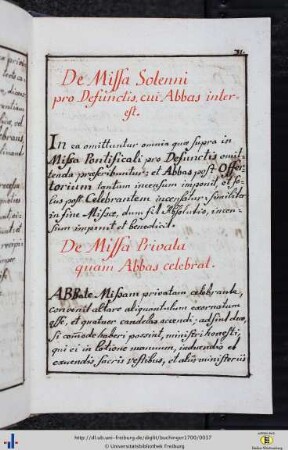 31.
De Missa Solenni
pro Defunctis, cui Abbas inter-
est.
In ea omittuntur omnia quæ supra in
Missa Pontificali pro Defunctis omit-
tenda præscribuntur; et Abbas post Offer-
torium tantum incensum imponit, et
cius post Celebrantem incensatur. Similiter
in fine Missæ, dum fit Absolutio, incen-
sum imponit et benedicit.
De Missa Privata
quam Abbas celebrat.
Abbate Missam privatam celebrante,
convenit altare aliquantulum exornatum
esse, et quatuor candelas accendi: adsint duo,
si commode haberi possint, ministri honesti,
qui ei in lotione manuum, induendis et
exuendis sacris vestibus, et aliis ministeriis
http://dl.ub.uni-freiburg.de/diglit/buchinger1700/0017
© Universitätsbibliothek Freiburg